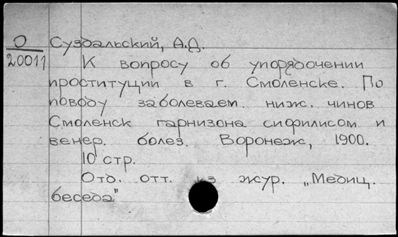 О
20011
Суздальский, А.Д.
К вопросу об упорядочении
проституции в г. Смоленске. По
поводу заболевает. ниж. чинов
Смоленск гарнизона сифилисом и
венер. болез. Воронеж, 1900.
10 стр.
Отд. отт. из жур. „Медиц.
беседа"